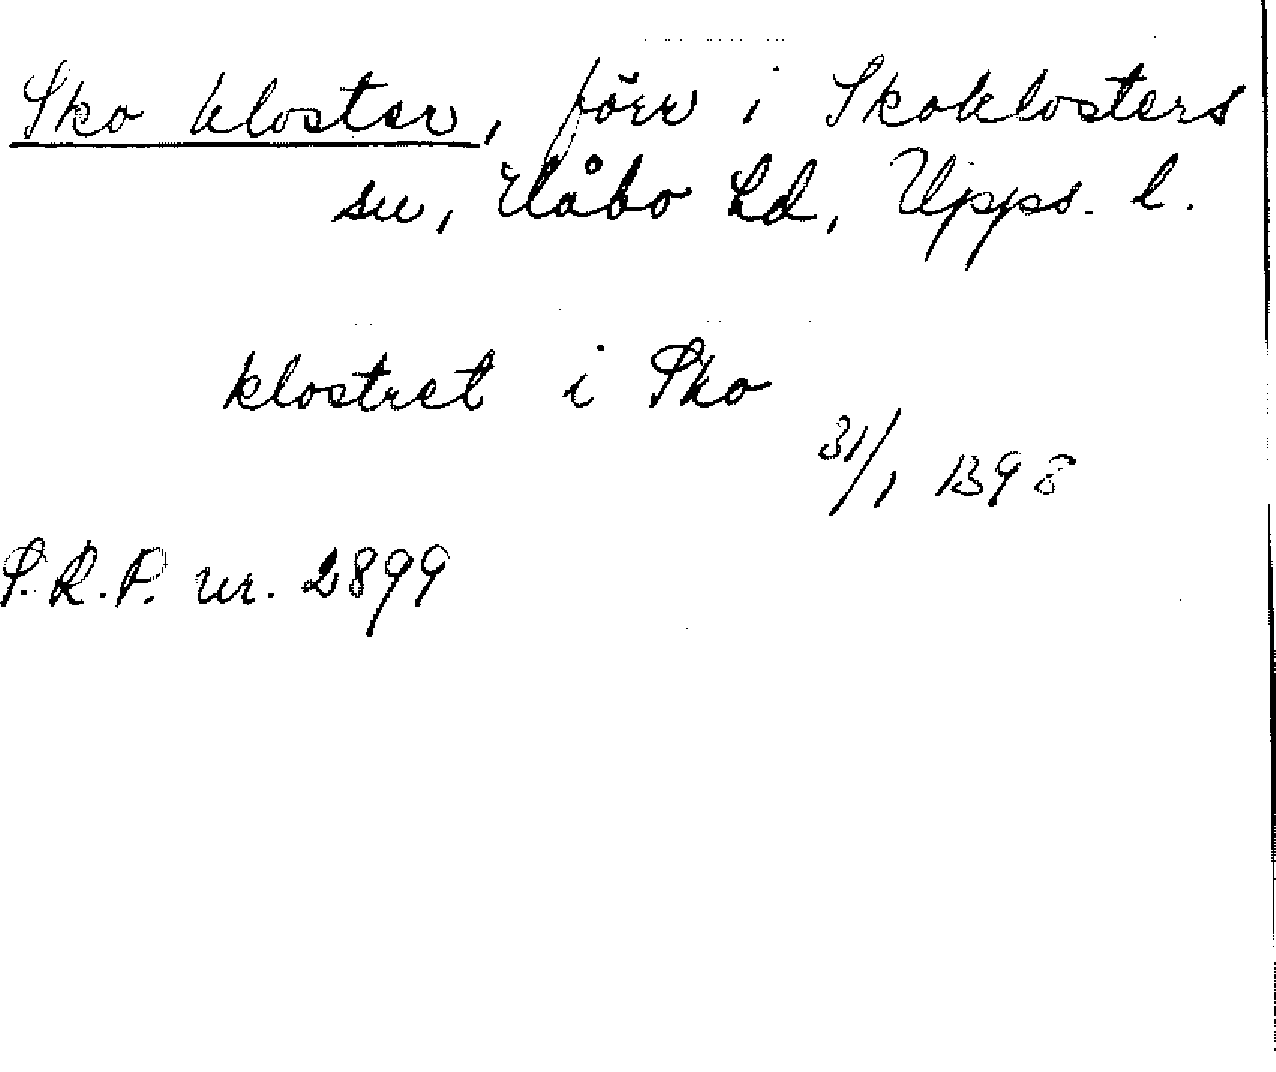 Sko kloster, förr i Skoklosters
sn, Håbo hd, Upps. l.
klostret i Sko
31/1 1398
S.R.P. nr. 2899